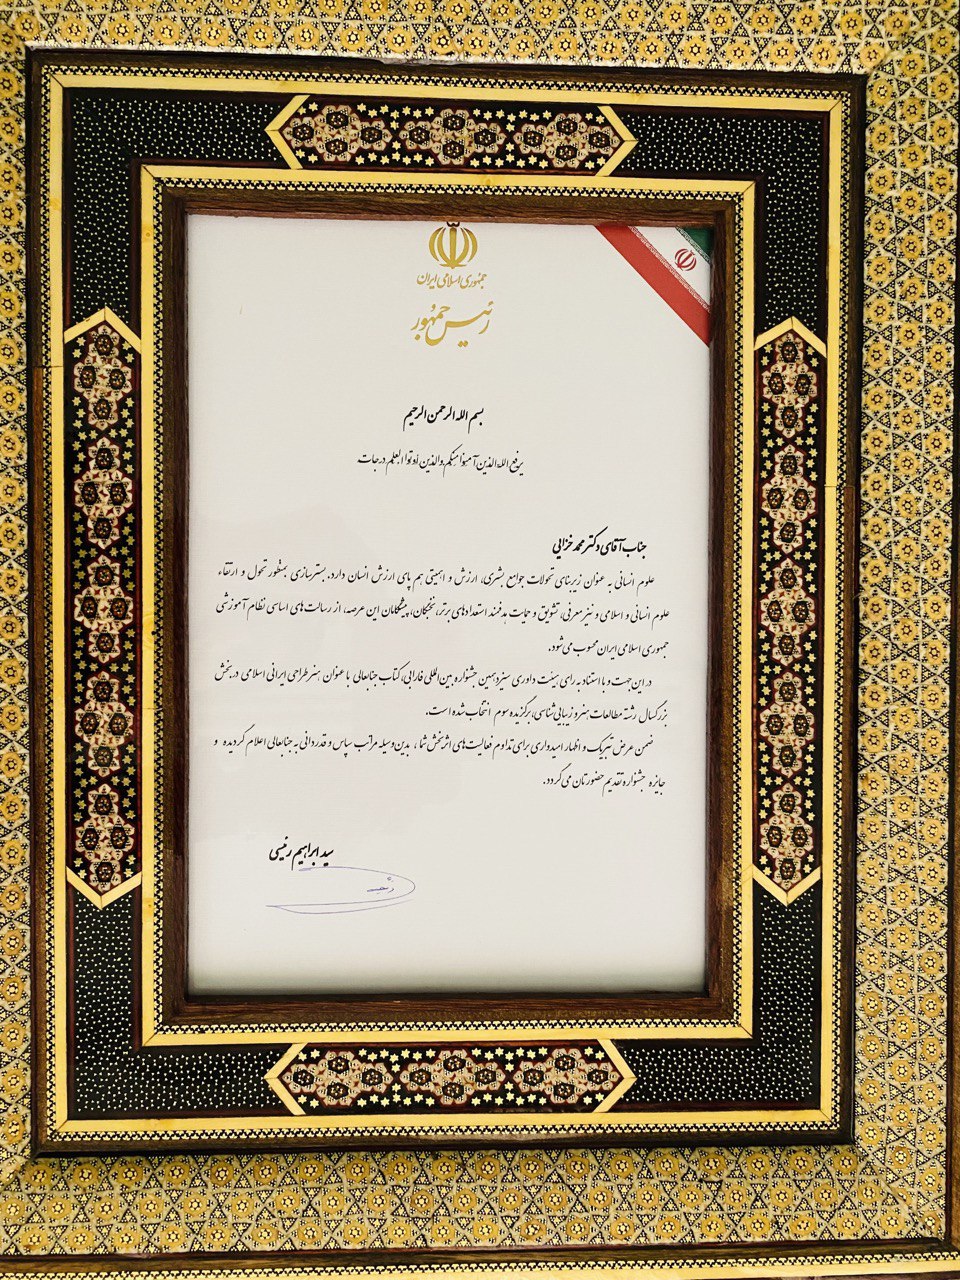 جمهوری اسلامی ایران
رئیس جمهور
بسم الله الرحمن الرحیم
یرفع الله الذین آمنوا منکم والذین اوتوا العلم درجات
جناب آقای دکتر محمد خزایی
علوم انسانی به عنوان زیربنای تحولات جوامع بشری، ارزش و اهمیتی هم پای ارزش انسان دارد. بسترسازی بمنظور تحول و ارتقاء
علوم انسانی و اسلامی و نیز معرفی، تشویق و حمایت هدفمند استعدادهای برتر، نخبگان، پیشگامان این عرصه، از رسالت‌های اساسی نظام آموزشی
جمهوری اسلامی ایران محسوب می‌شود.
در این جهت و با استناد به رای هیئت داوری سیزدهمین جشنواره بین‌المللی فارابی، کتاب جنابعالی با عنوان هنر طراحی ایرانی اسلامی در بخش
بزرگسال رشته مطالعات هنر و زیبایی‌شناسی، برگزیده سوم انتخاب شده است.
ضمن عرض تبریک و اظهار امیدواری برای تداوم فعالیت‌های اثربخش شما، بدین وسیله مراتب سپاس و قدردانی به جنابعالی اعلام گردیده و
جایزه جشنواره تقدیم حضورتان می‌گردد.
سید ابراهیم رئیسی